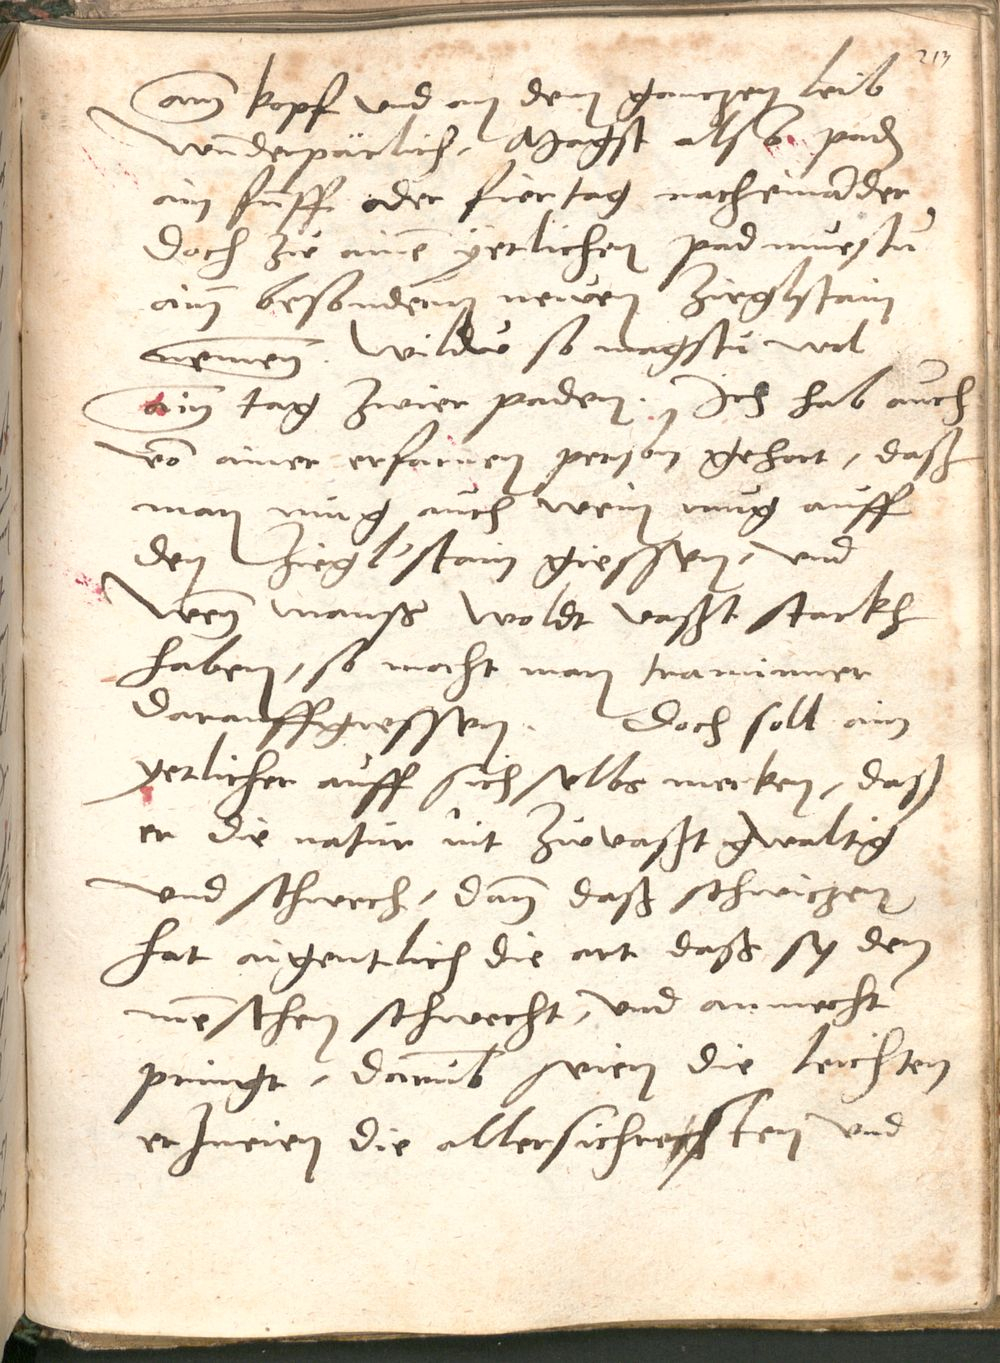 213
am̄ kopf vnd an dem ganczen leib
wunderpärlich, Magst also paden
ain funff oder fier tag nacheinander
doch zů aine͂ yetlichen pad muestu
ain̄ besondern neuen Zieglstain
nemen. Wildu so magstu wol
ain̄ tag zwier paden. Ich hab auch
vō ainer erfarnen person gehört, daß
man mug auch wein mug auff
den Zieglstain giessen, vnd
wen̄ manß woldt vaßt starkh
haben, so mocht man traminner
darauffgiessen. Doch soll ain
yetlicher auff sich selbs merken, daß
er die natur nit zuuaßt gwaltig
vnd schwech, dan̄ daß schwiczen
hat aigentlich die art daß sy den
me͂schen schwecht, vnd anmecht
pringt, darumb seien die leichten
erzneien die allersichresten vnd